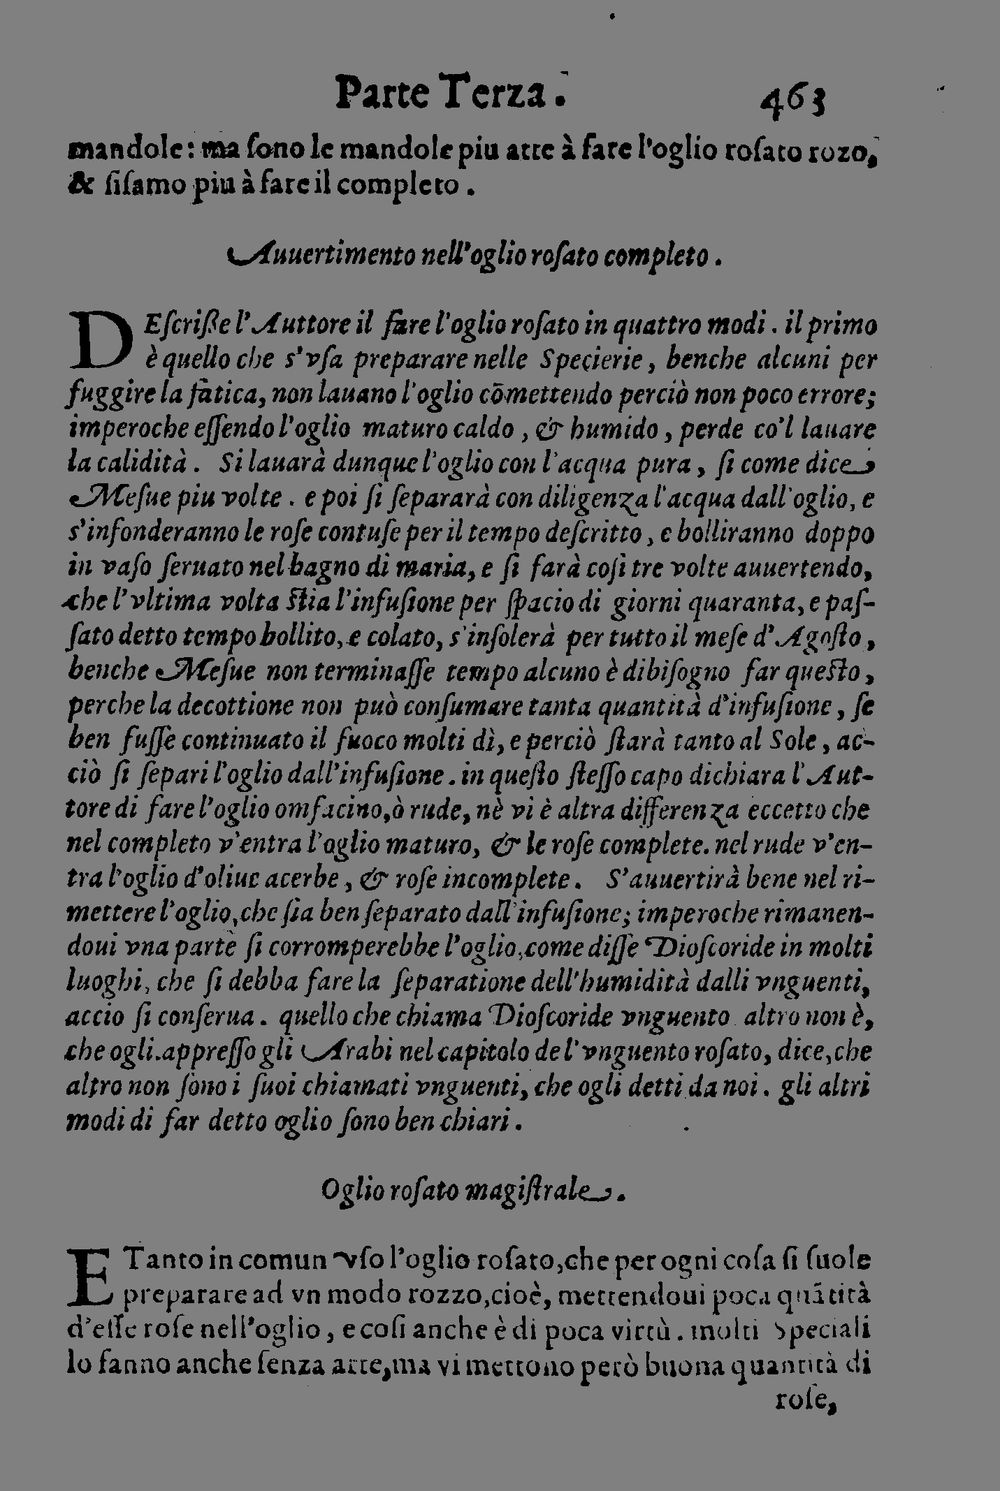 Parte Terza. 463
mandole: ma ſono le mandole piu atte à fare l'oglio roſato rozo,
& ſiſamo piu à fare il completo.
Auuertimento nell'oglio roſato completo.
DEſcriße l'Auttore il fare l'oglio roſato in quattro modi. il primo
è quello che s'vſa preparare nelle Specierie, benche alcuni per
fuggire la fatica, non lauano l'oglio cōmettendo perciò non poco errore;
imperoche eſſendo l'oglio maturo caldo, & humido, perde co'l lauare
la calidità. Si lauarà dunque l'oglio con l'acqua pura, ſi come dice
Meſue piu volte. e poi ſi ſepararà con diligenza l'acqua dall'oglio, e
s'infonderanno le roſe contuſe per il tempo deſcritto, e bolliranno doppo
in vaſo ſeruato nel bagno di maria, e ſi farà coſi tre volte auuertendo,
che l'vltima volta ſtia l'infuſione per ſpacio di giorni quaranta, e paſ-
ſato detto tempo bollito, e colato, s'inſolerà per tutto il meſe d'Agoſto,
benche Meſue non terminaſſe tempo alcuno è dibiſogno far queſto,
perche la decottione non può conſumare tanta quantità d'infuſione, ſe
ben fuſſe continuato il fuoco molti dì, e perciò ſtarà tanto al Sole, ac-
ciò ſi ſepari l'oglio dall'infuſione. in queſto ſteſſo capo dichiara l'Aut-
tore di fare l'oglio omfacino, ò rude, nè vi è altra differenza eccetto che
nel completo v'entra l'oglio maturo, & le roſe complete. nel rude v'en-
tra l'oglio d'oliue acerbe, & roſe incomplete. S'auuertirà bene nel ri-
mettere l'oglio, che ſia ben ſeparato dall'infuſione; imperoche rimanen-
doui vna parte ſi corromperebbe l'oglio, come diſſe Dioſcoride in molti
luoghi, che ſi debba fare la ſeparatione dell'humidità dalli vnguenti,
accio ſi conſerua. quello che chiama Dioſcoride vnguento altro non è,
che ogli. appreſſo gli Arabi nel capitolo de l'vnguento roſato, dice, che
altro non ſono i ſuoi chiamati vnguenti, che ogli detti da noi. gli altri
modi di far detto oglio ſono ben chiari.
Oglio roſato magiſtrale.
ETanto in comun vſo l'oglio roſato, che per ogni coſa ſi ſuole
preparare ad vn modo rozzo, cioè, mettendoui poca quãtità
d'eſſe roſe nell'oglio, e coſi anche è di poca virtù. molti Speciali
lo fanno anche ſenza arte, ma vi mettono però buona quantità di
roſe,